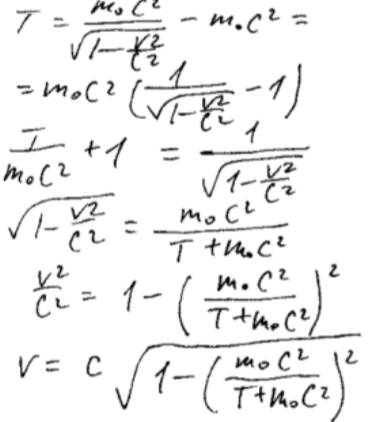 T = m₀c² / √(1 - v²/c²) - m₀c² =
= m₀c² (1 / √(1 - v²/c²) - 1)
T / m₀c² + 1 = 1 / √(1 - v²/c²)
√(1 - v²/c²) = m₀c² / (T + m₀c²)
v²/c² = 1 - (m₀c² / (T + m₀c²))²
v = c √(1 - (m₀c² / (T + m₀c²))²)